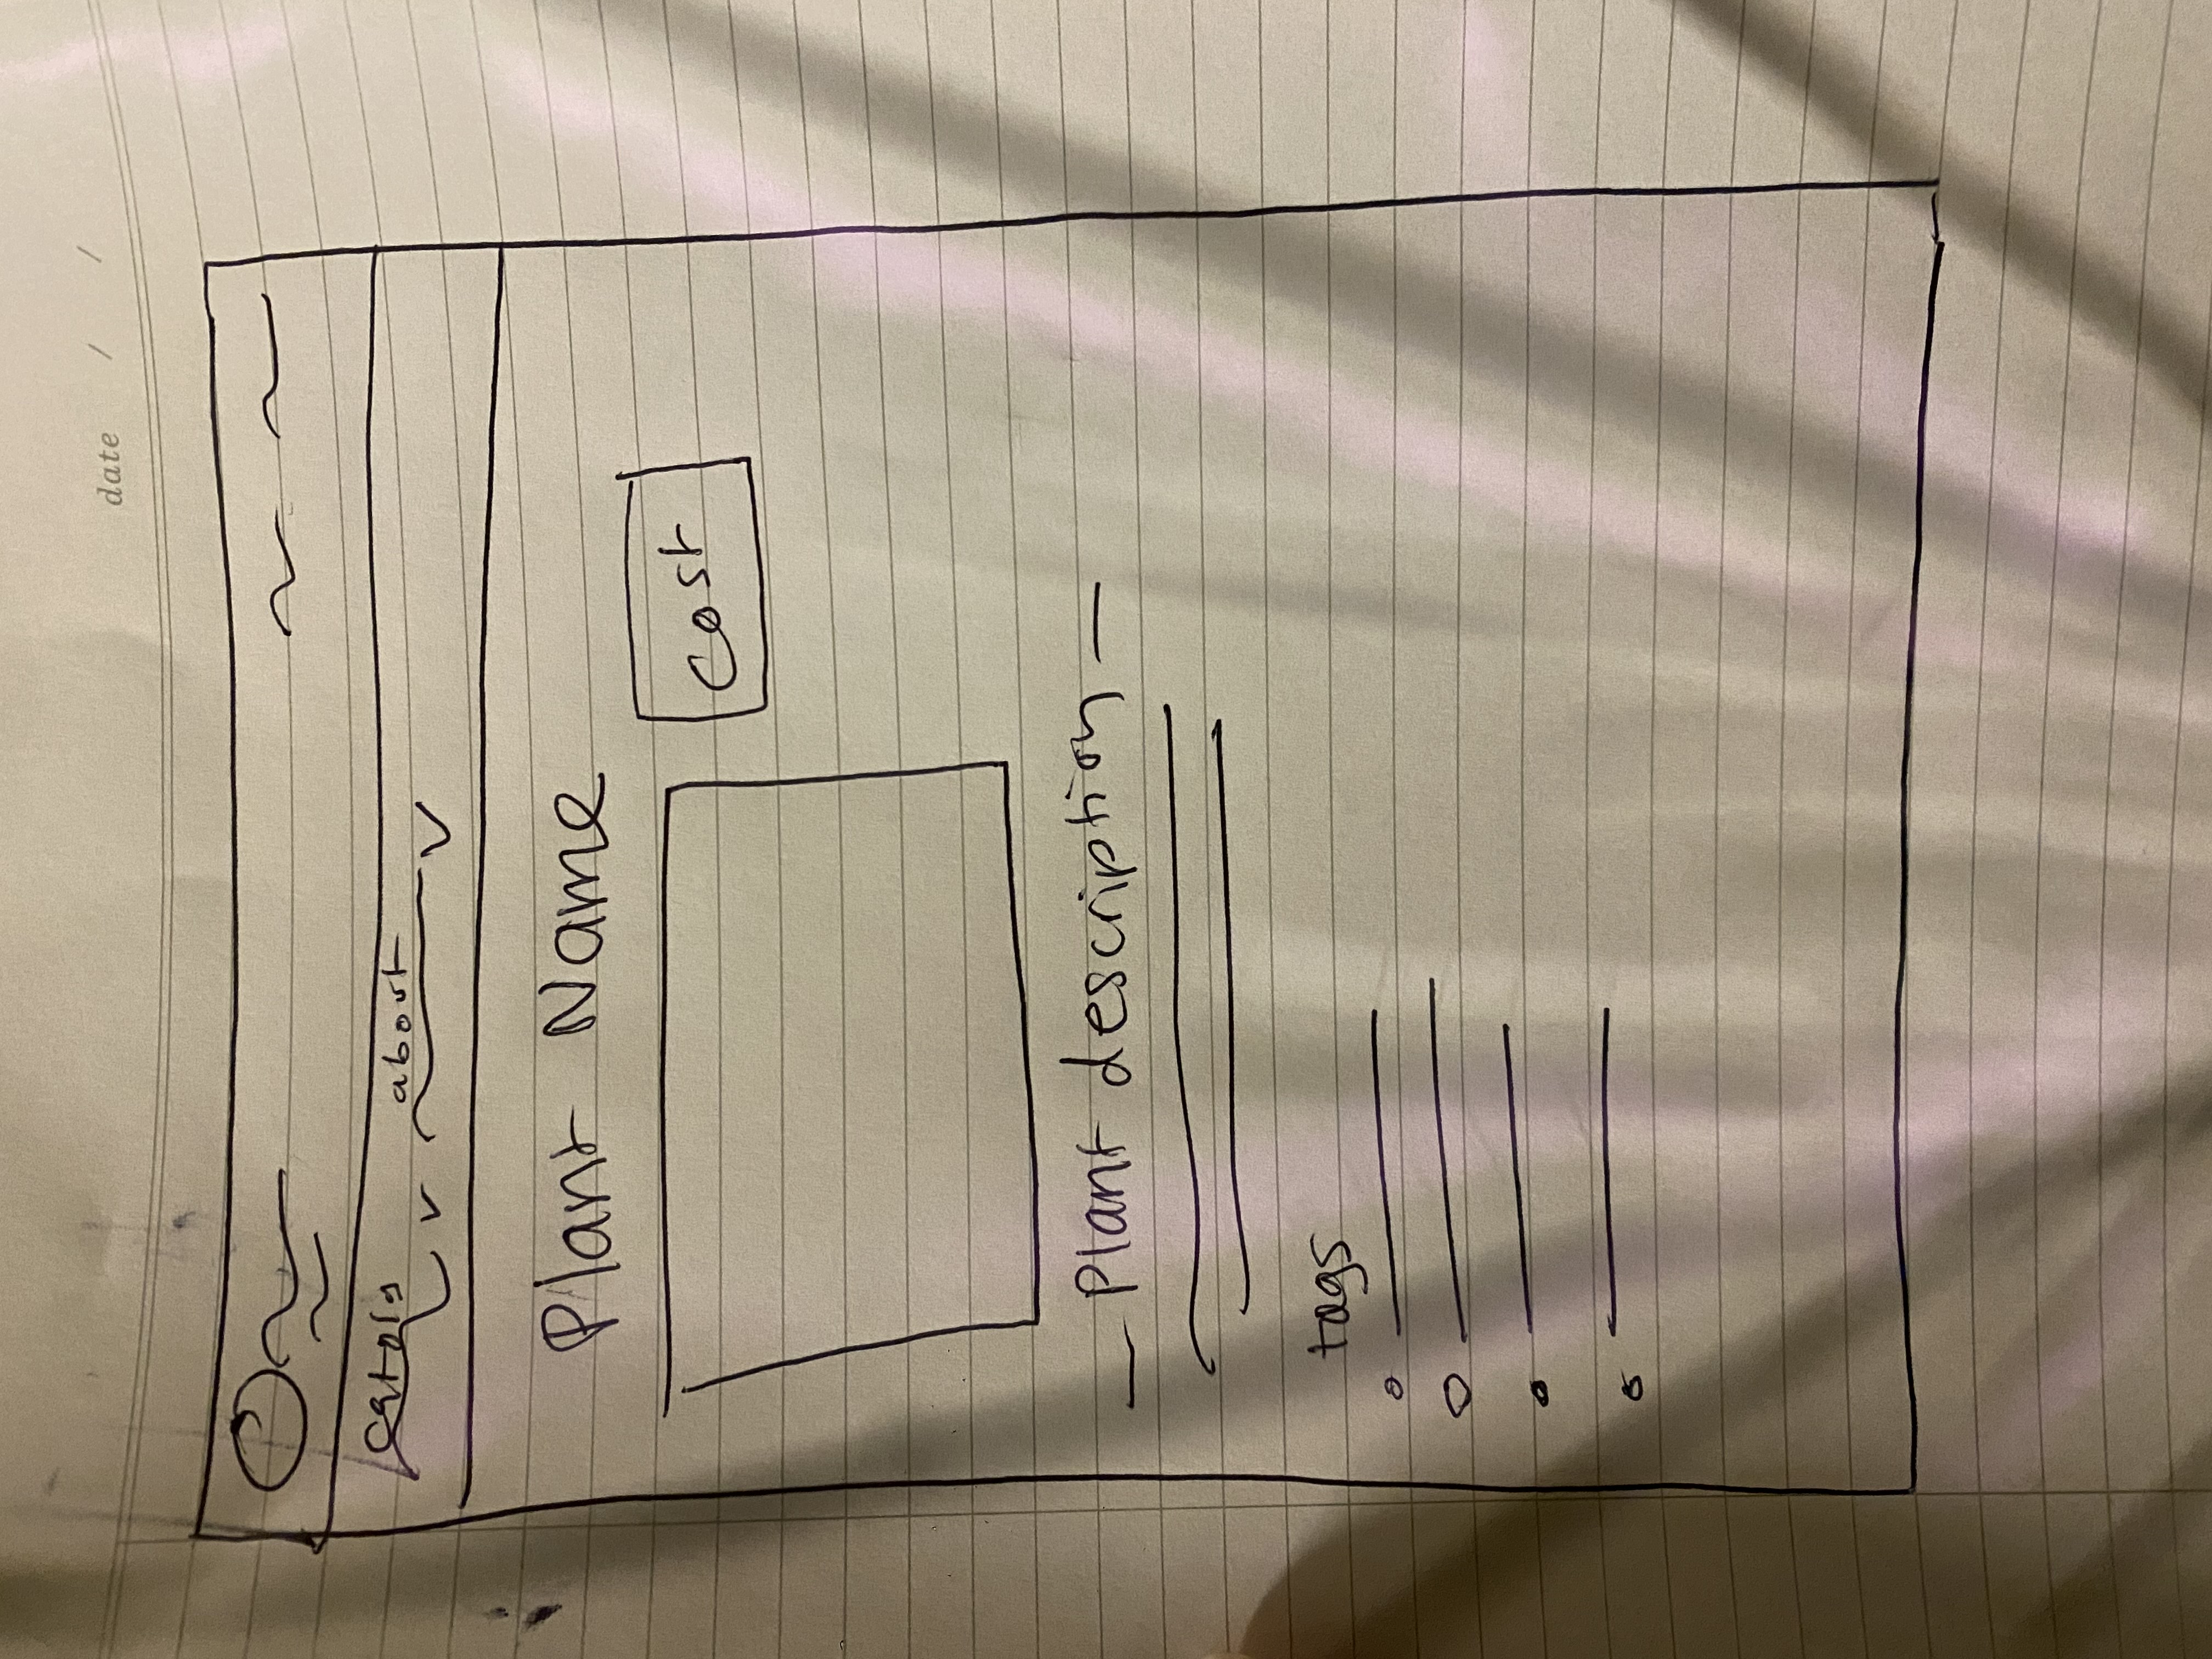 date / /
about
Plant Name
cost
Plant description
tags